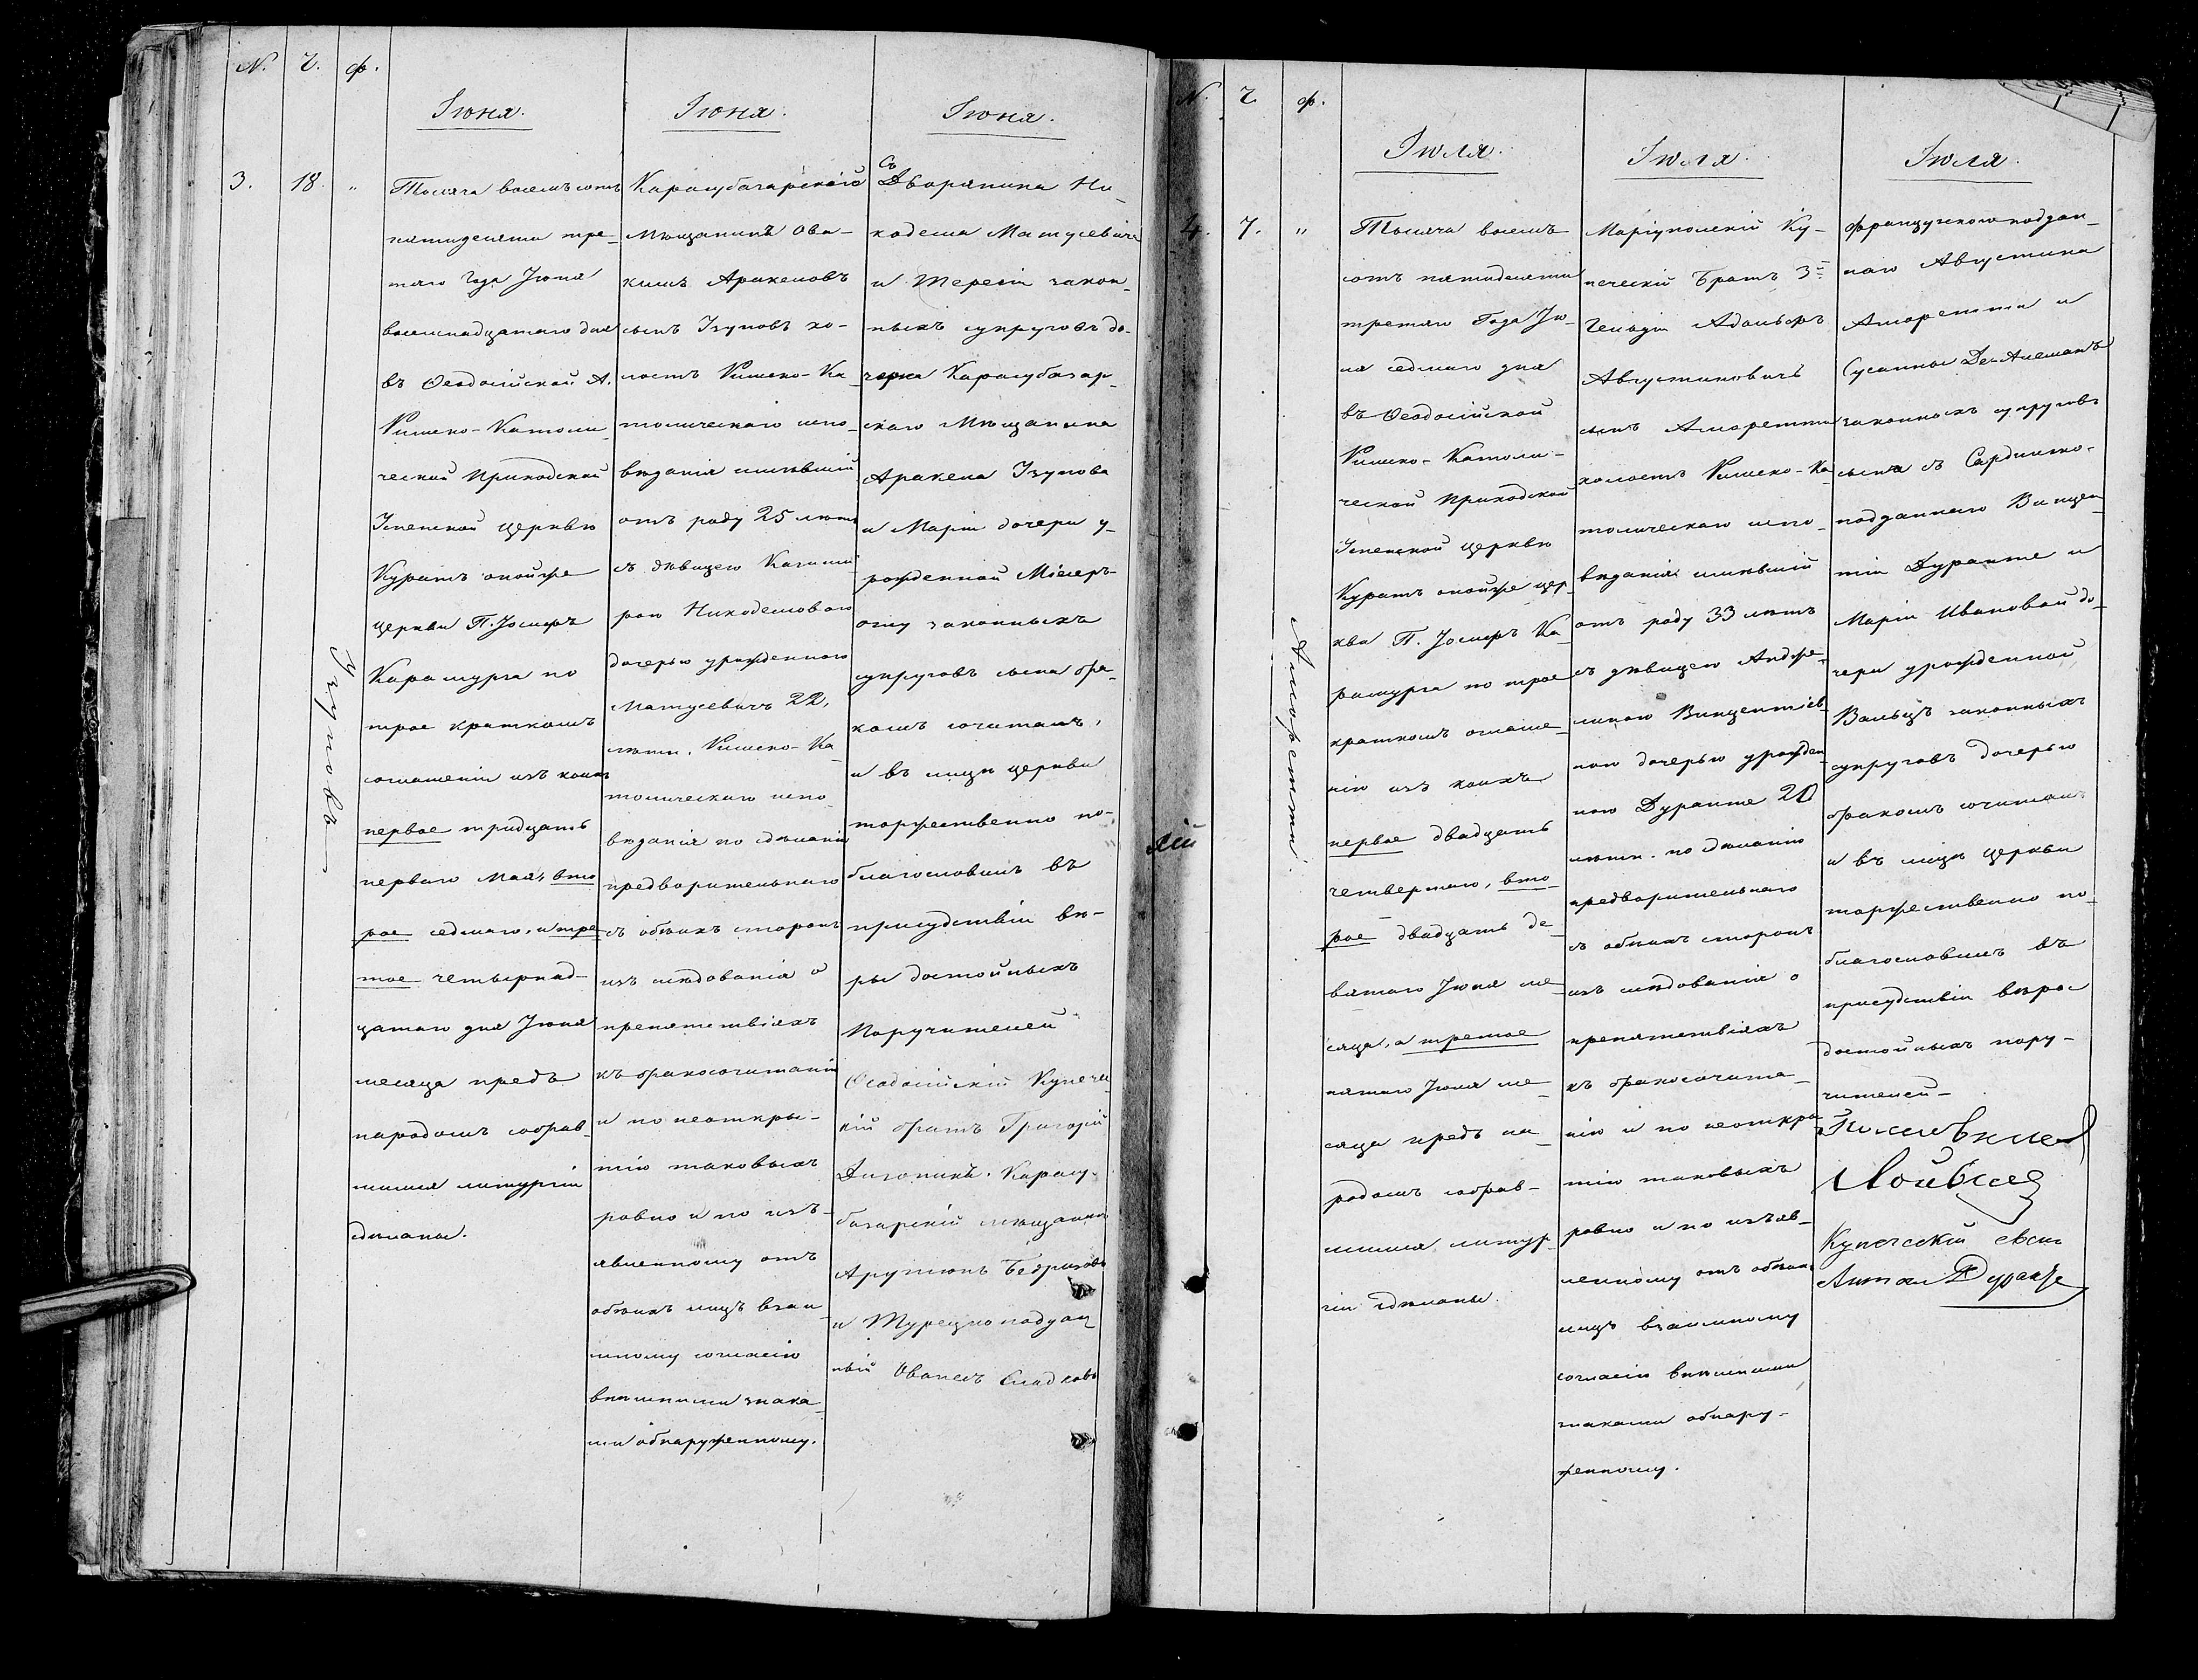 N. Ч. ф.
Іюня.
3. 18. "
Тысяча восемь сотъ
пятидесяти тре-
тяго Года Іюня
восемнадцатаго дня
въ Ѳеодосійской А.
Римско-Католи
ческой Приходской
Успенской церквѣ
Куратъ онойже
церкви П. Іосифъ
Карашурга по
трое краткомъ
оглашеніи изъ коихъ
первое тридцать
перваго Мая, вто
рое седмаго, и тре
тое четырнад-
цатаго дня Іюня
месяца предъ
народомъ собрав-
шимся литургіи
сдѣланы.
Узуновъ
Іюня.
Карасубазарскій
Мѣщанинъ Ова-
кимъ Аракеловъ
сынъ Узуновъ хо-
лостъ Римско-Ка
толическаго испо-
вѣданія имѣвшій
отъ роду 25 лѣтъ
съ дѣвицею Казими
рою Никодемовою
дочерью урожденною
Матусевичъ 22,
лѣтъ. Римско-Ка
толическаго испо
вѣданія по сдѣланіи
предворительнаго
съ обѣихъ сторонъ
изъ слѣдованія о
препятствіяхъ
къ бракосочитанію
и по неоткры-
тію таковыхъ
равно и по изъ-
явленному отъ
обѣихъ лицъ взаи
мному согласію
внѣшними знака-
ми обнаруженному.
Іюня.
Съ
Дворянина Ни-
кодема Матусевича
и Терезіи закон-
ныхъ супруговъ до-
черка Карасубазар-
скаго Мѣщанина
Аракела Узунова
и Маріи дочери у-
рожденной
законныхъ
супруговъ сына бра-
комъ сочиталъ,
и въ лицѣ церкви
торжественно по-
благословилъ въ
присудствіи вѣ-
ры достойныхъ
Поручителей
Ѳеодосійскій Купечес
кій братъ Григорій
Карасу-
базарскій мѣщанинъ
Арутюнъ
и Турецко подан
ный Ованесъ
N. Ч. ф.
Іюля.
4. 7. "
Тысяча восемь
сотъ пятидесяти
третяго Года Ію-
ля седмаго дня
въ Ѳеодосійской
Римско-Католи-
ческой Приходской
Успенской церквѣ
Куратъ онойже цер-
кви П. Іосифъ Ка
рашурга по трое
краткомъ оглаше-
ніи изъ коихъ
первое двадцать
четвертаго, вто-
рое двадцать де-
вятаго Іюня ме-
сяца, а третое
пятаго Іюля ме-
сяца предъ на-
родомъ собрав-
шимся литур-
гіи сдѣланы.
Аморетти
Іюля.
Маріупольскій Ку-
печескій Братъ 3й
Гильдіи Адольфъ
Августиновичъ
сынъ Аморетти
холостъ Римско-Ка
толическаго испо-
вѣданія имѣвшій
отъ роду 33 лѣтъ
съ дѣвицею Анже-
ликою Винцентіев-
ною дочерью урожден
ною Дуранте 20
лѣтъ. по сдѣланію
предворительнаго
съ обѣихъ сторонъ
изъ слѣдованія о
препятствіяхъ
къ бракосочита-
нію и по неоткры
тію таковыхъ
равно и по изъяв-
ленному отъ обѣихъ
лицъ взаимному
согласію внѣшними
знаками обнару-
женному.
Іюля.
Французскоподдан-
наго Августина
Аморетти и
Сусанны Де-Алеманъ
законныхъ супруговъ
сына съ Сардинско-
подданнаго Винцен
тія Дуранте и
Маріи Ивановой до-
чери урожденной
законныхъ
супруговъ дочерью
бракомъ сочиталъ
и въ лицѣ церкви
торжественно по-
благословилъ въ
присудствіи вѣро-
достойныхъ пору-
чителей-
Купеческій сынъ
Антон Дуранте